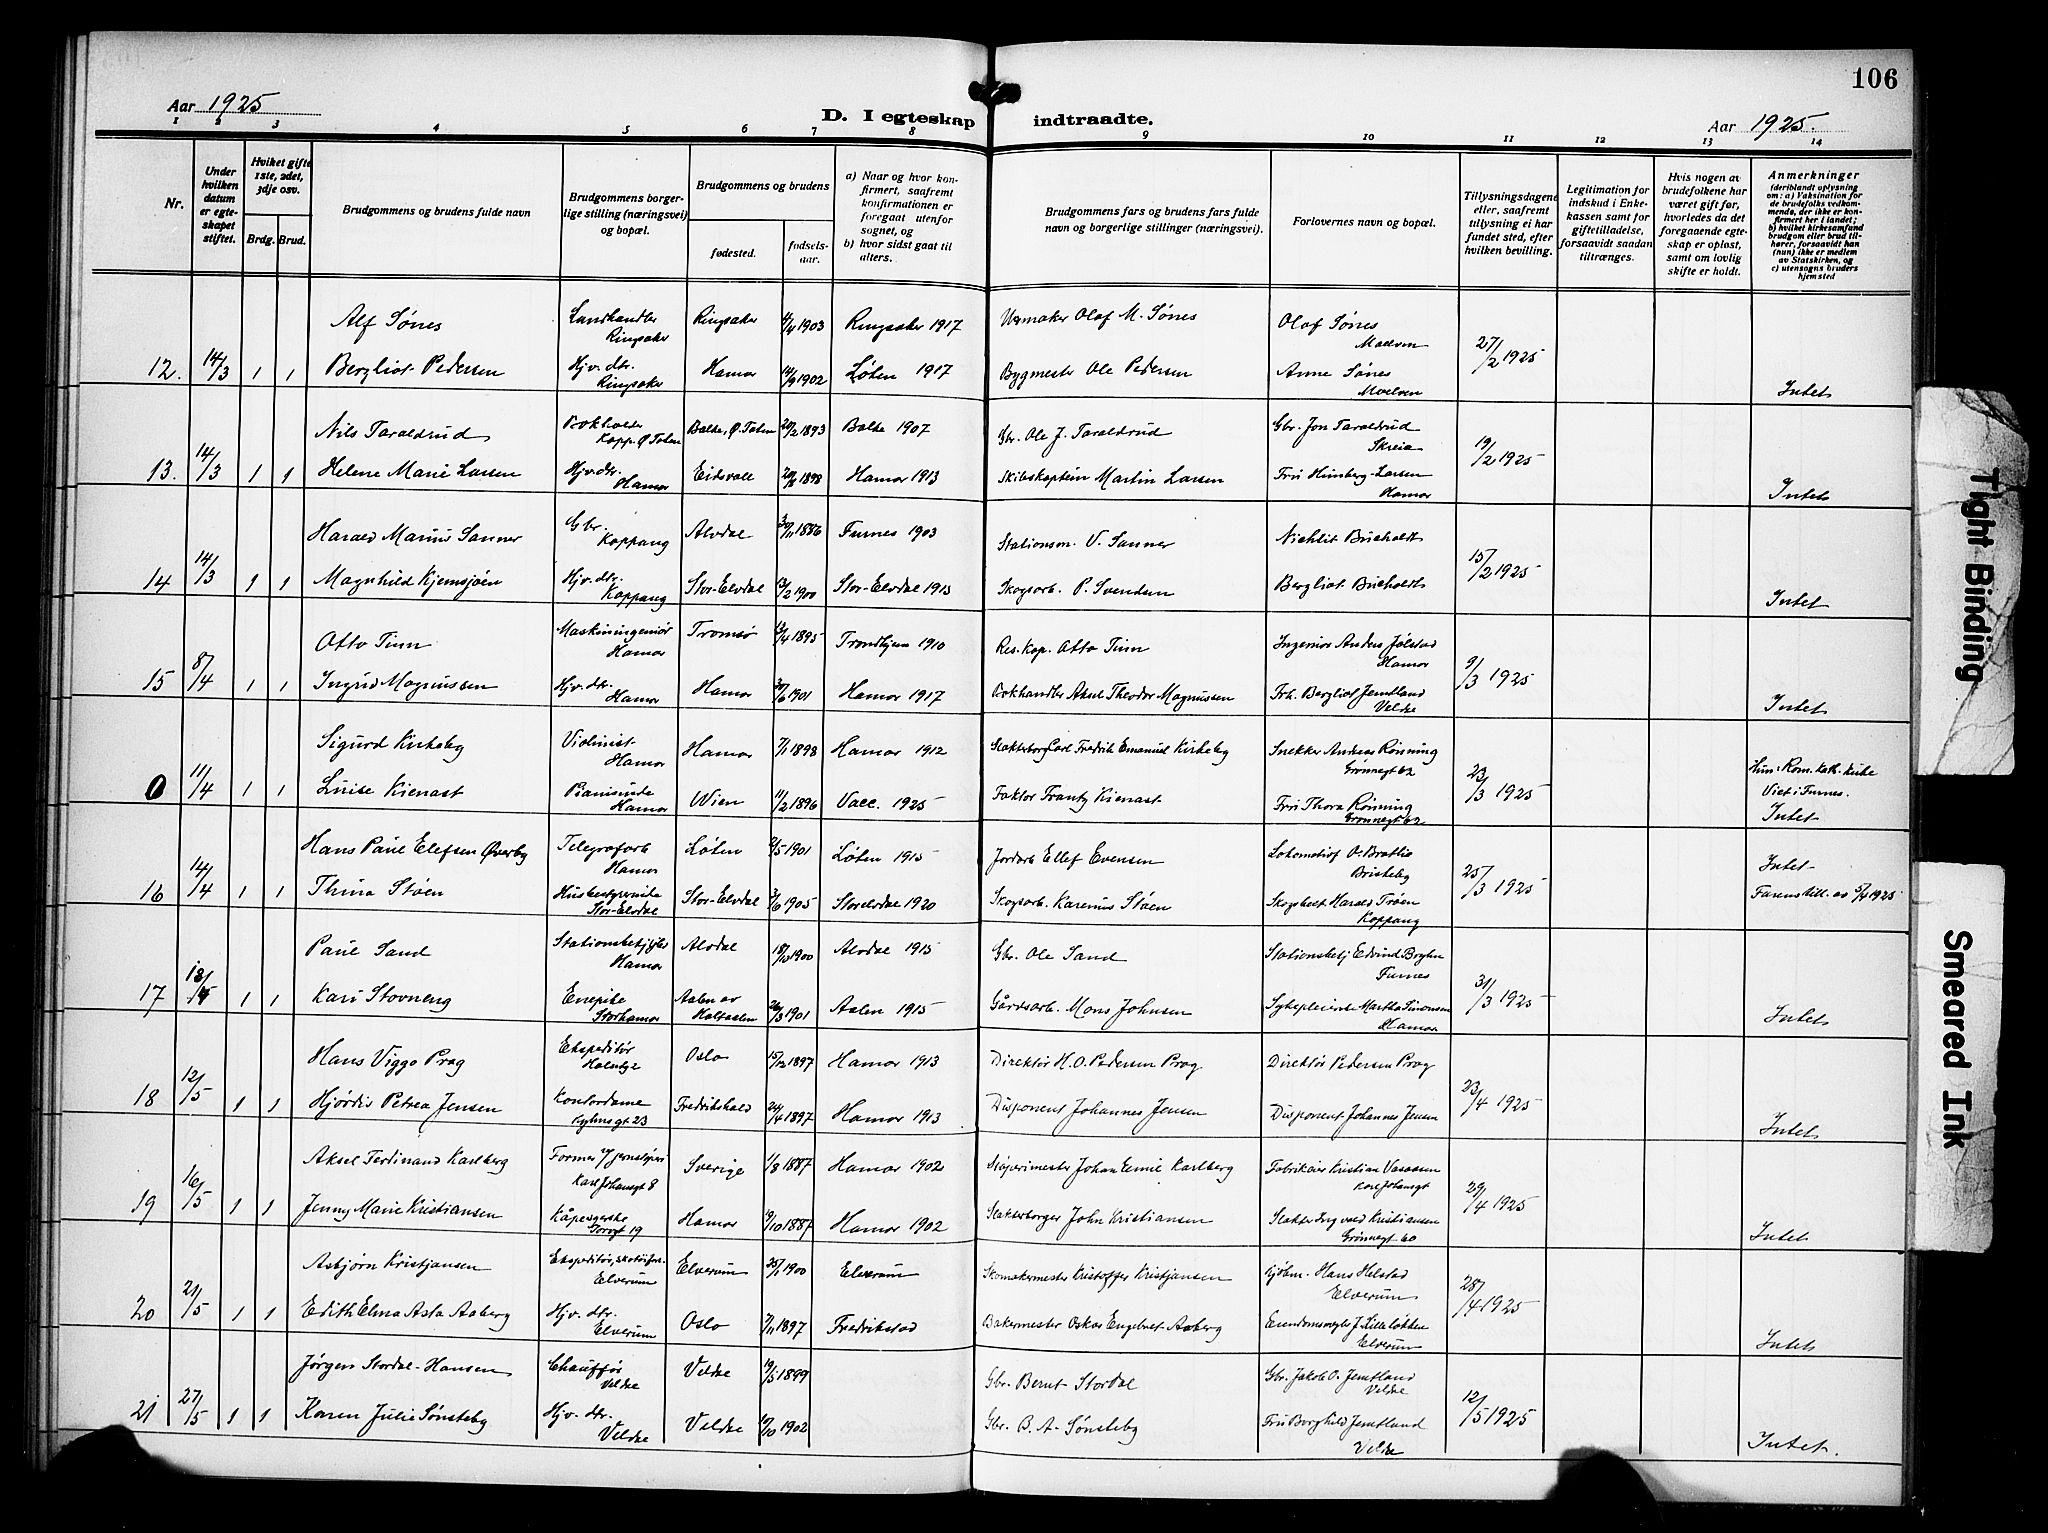 106
Aar 1925
D. I egteskap indtraadte.
Aar 1925.
1 2 3 4 5 6 7 8 9 10 11 12 13 14
Nr.
Under hvilken datum er egteskapet stiftet.
Hvilket gifte 1ste, 2det, 3dje osv.
Brdg. Brud.
Brudgommens og brudens fulde navn
Brudgommens borgerlige stilling (næringsvei) og bopæl.
Brudgommens og brudens
fødested.
fødselsaar.
a) Naar og hvor konfirmert, saafremt konfirmationen er foregaat utenfor sognet, og
b) hvor sidst gaat til alters.
Brudgommens fars og brudens fars fulde navn og borgerlige stillinger (næringsvei).
Forlovernes navn og bopæl.
Tillysningsdagene eller, saafremt tillysning ei har fundet sted, efter hvilken bevilling.
Legitimation for indskud i Enkekassen samt for giftetilladelse, forsaavidt saadan tiltrænges.
Hvis nogen av brudefolkene har været gift før, hvorledes da det foregaaende egteskap er opløst, samt om lovlig skifte er holdt.
Anmerkninger
(deriblandt oplysning om: a) Vaksination for de brudefolks vedkommende, der ikke er konfirmert her i landet; b) hvilket kirkesamfund brudgom eller brud tilhører, forsaavidt han (hun) ikke er medlem av Statskirken, og c) utensogns bruders hjemsted
Alf Sønes Landhandler Ringsaker Ringsaker 4/4 1903 Ringsaker 1917 Urmaker Olaf M. Sønes Olaf Sønes Moelven
12. 14/3 1 1 Bergliot Pedersen Hjv. dtr. Ringsaker Hamar 14/9 1902 Løten 1917 Bygmester Ole Pedersen Anne Sønes Moelven 27/2 1925 Intet
Nils Taraldrud Bokholder Kapp, Ø Toten Balke, Ø. Toten 20/2 1893 Balke 1907 Gbr. Ole J. Taraldrud Gbr. Jon Taraldrud Skreia
13. 14/3 1 1 Helene Marie Larsen Hjv. dtr. Hamar Eidsvoll 1898 Hamar 1913 Skibskaptein Martin Larsen Fru Himberg-Larsen Hamar 19/2 1925 Intet
Harald Marius Sanner Gbr. Koppang Alvdal 30/11 1886 Furnes 1903 Stationsm. V. Sanner Bucholdt
14 14/3 1 1 Magnhild Kjemsjøen Hjv. dtr. Koppang Stor-Elvdal 1900 Stor-Elvdal 1915 Skogsarb. P. Svendsen Bergliot Bucholdt 15/2 1925 Intet
Otto Tinn Maskiningeniør Hamar Tromsø 1895 Trondhjem 1910 Res. kap. Otto Tinn Ingeniør Anders Jølstad Hamar
15 8/4 1 1 Ingrid Magnussen Hjv. dtr. Hamar Hamar 30/6 1901 Hamar 1917 Bokhandler Aksel Theodor Magnussen Frk. Bergliot Jemtland Veldre 9/3 1925 Intet
Sigurd Kirkeby Violinist Hamar Hamar 7/1 1898 Hamar 1912 Slakterborg Carl Fredrik Emanuel Kirkeby Snekker Andreas Rønning Grønnegt 62
0 11/4 1 1 Luise Kienast Pianistinde Hamar Wien 11/2 1896 Vacc. 1925 Faktor Frantz Kienast Fru Thora Rønning Grønnegt 62 23/3 1925 Hun: Rom. kath. kirke Viet i Furnes. Intet
Hans Paul Elefsen Øverby Telegrafarb Hamar Løten 2/5 1901 Løten 1915 Jordarb. Ellef Evensen Lokomotivf O. Brattlie Briskeby Intet
16 14/4 1 1 Thina Støen Husbestyrerinde Stor-Elvdal Stor-Elvdal 3/6 1905 Storelvdal 1920 Skogsarb. Karenus Støen Skogsbet Harald Trøen Koppang 25/3 1925 Farens till. av 5/4 1925
Paul Sand Stationsbetjent Hamar Alvdal 18/10 1900 Alvdal 1915 Gbr. Ole Sand Stationsbetj Edvind Furnes
17 18/4 1 1 Kari Stovneng Enepike Storhamar Aalen av Holtaalen 26/3 1901 Aalen 1915 Gårdsarb. Mons Johnsen Sykepleierske Martha Simonsen Hamar 31/3 1925 Intet
Hans Viggo Prag Ekspeditør Oslo 15/12 1897 Hamar 1913 Direktør H. O. Pedersen Prag Direktør Pedersen Prag
18 12/5 1 1 Hjørdis Petrea Jensen Kontordame 23 Fredrikshald 24/4 1897 Hamar 1913 Disponent Johannes Jensen Disponent Johannes Jensen 23/4 1925 Intet
Aksel Ferdinand Karlberg Former v/ jernstøperi Karl Johansgt 8 Sverige 1/8 1887 Hamar 1902 Støperimester Johan Emil Karlberg Fabrikeier Kristian Vasaasen Karl Johansgt
19 16/5 1 1 Jenny Marie Kristiansen Kåpesyerske Torvgt 19 Hamar 9/10 1887 Hamar 1902 Slakterborger John Kristiansen Slakter Ingvald Kristiansen Grønnegt 60 29/4 1925 Intet
Asbjørn Kristjansen Ekspeditør, skotøiforr. Elverum Elverum 25/1 1900 Elverum Skomakermester Kristoffer Kristjansen Kjøbm. Hans Helstad Elverum
20 21/5 1 1 Edith Elma Asta Aaberg Hjv. dtr. Elverum Oslo 7/11 1897 Fredrikstad Bakermester Oskar Engelbret Aaberg Eiendomsmegler J. Lilleløkken Elverum 28/4 1925 Intet
Jørgen Stordal-Hansen Chauffør Veldre Veldre 19/5 1899 Gbr. Bernt Stordal Gbr. Jakob O. Jemtland Veldre
21 27/5 1 1 Karen Julie Sønsteby Hjv. dtr. Veldre Veldre 1902 Gbr. B. A. Sønsteby Fru Borghild Jemtland Veldre 12/5 1925 Intet.
Tight Binding
Smeared Ink